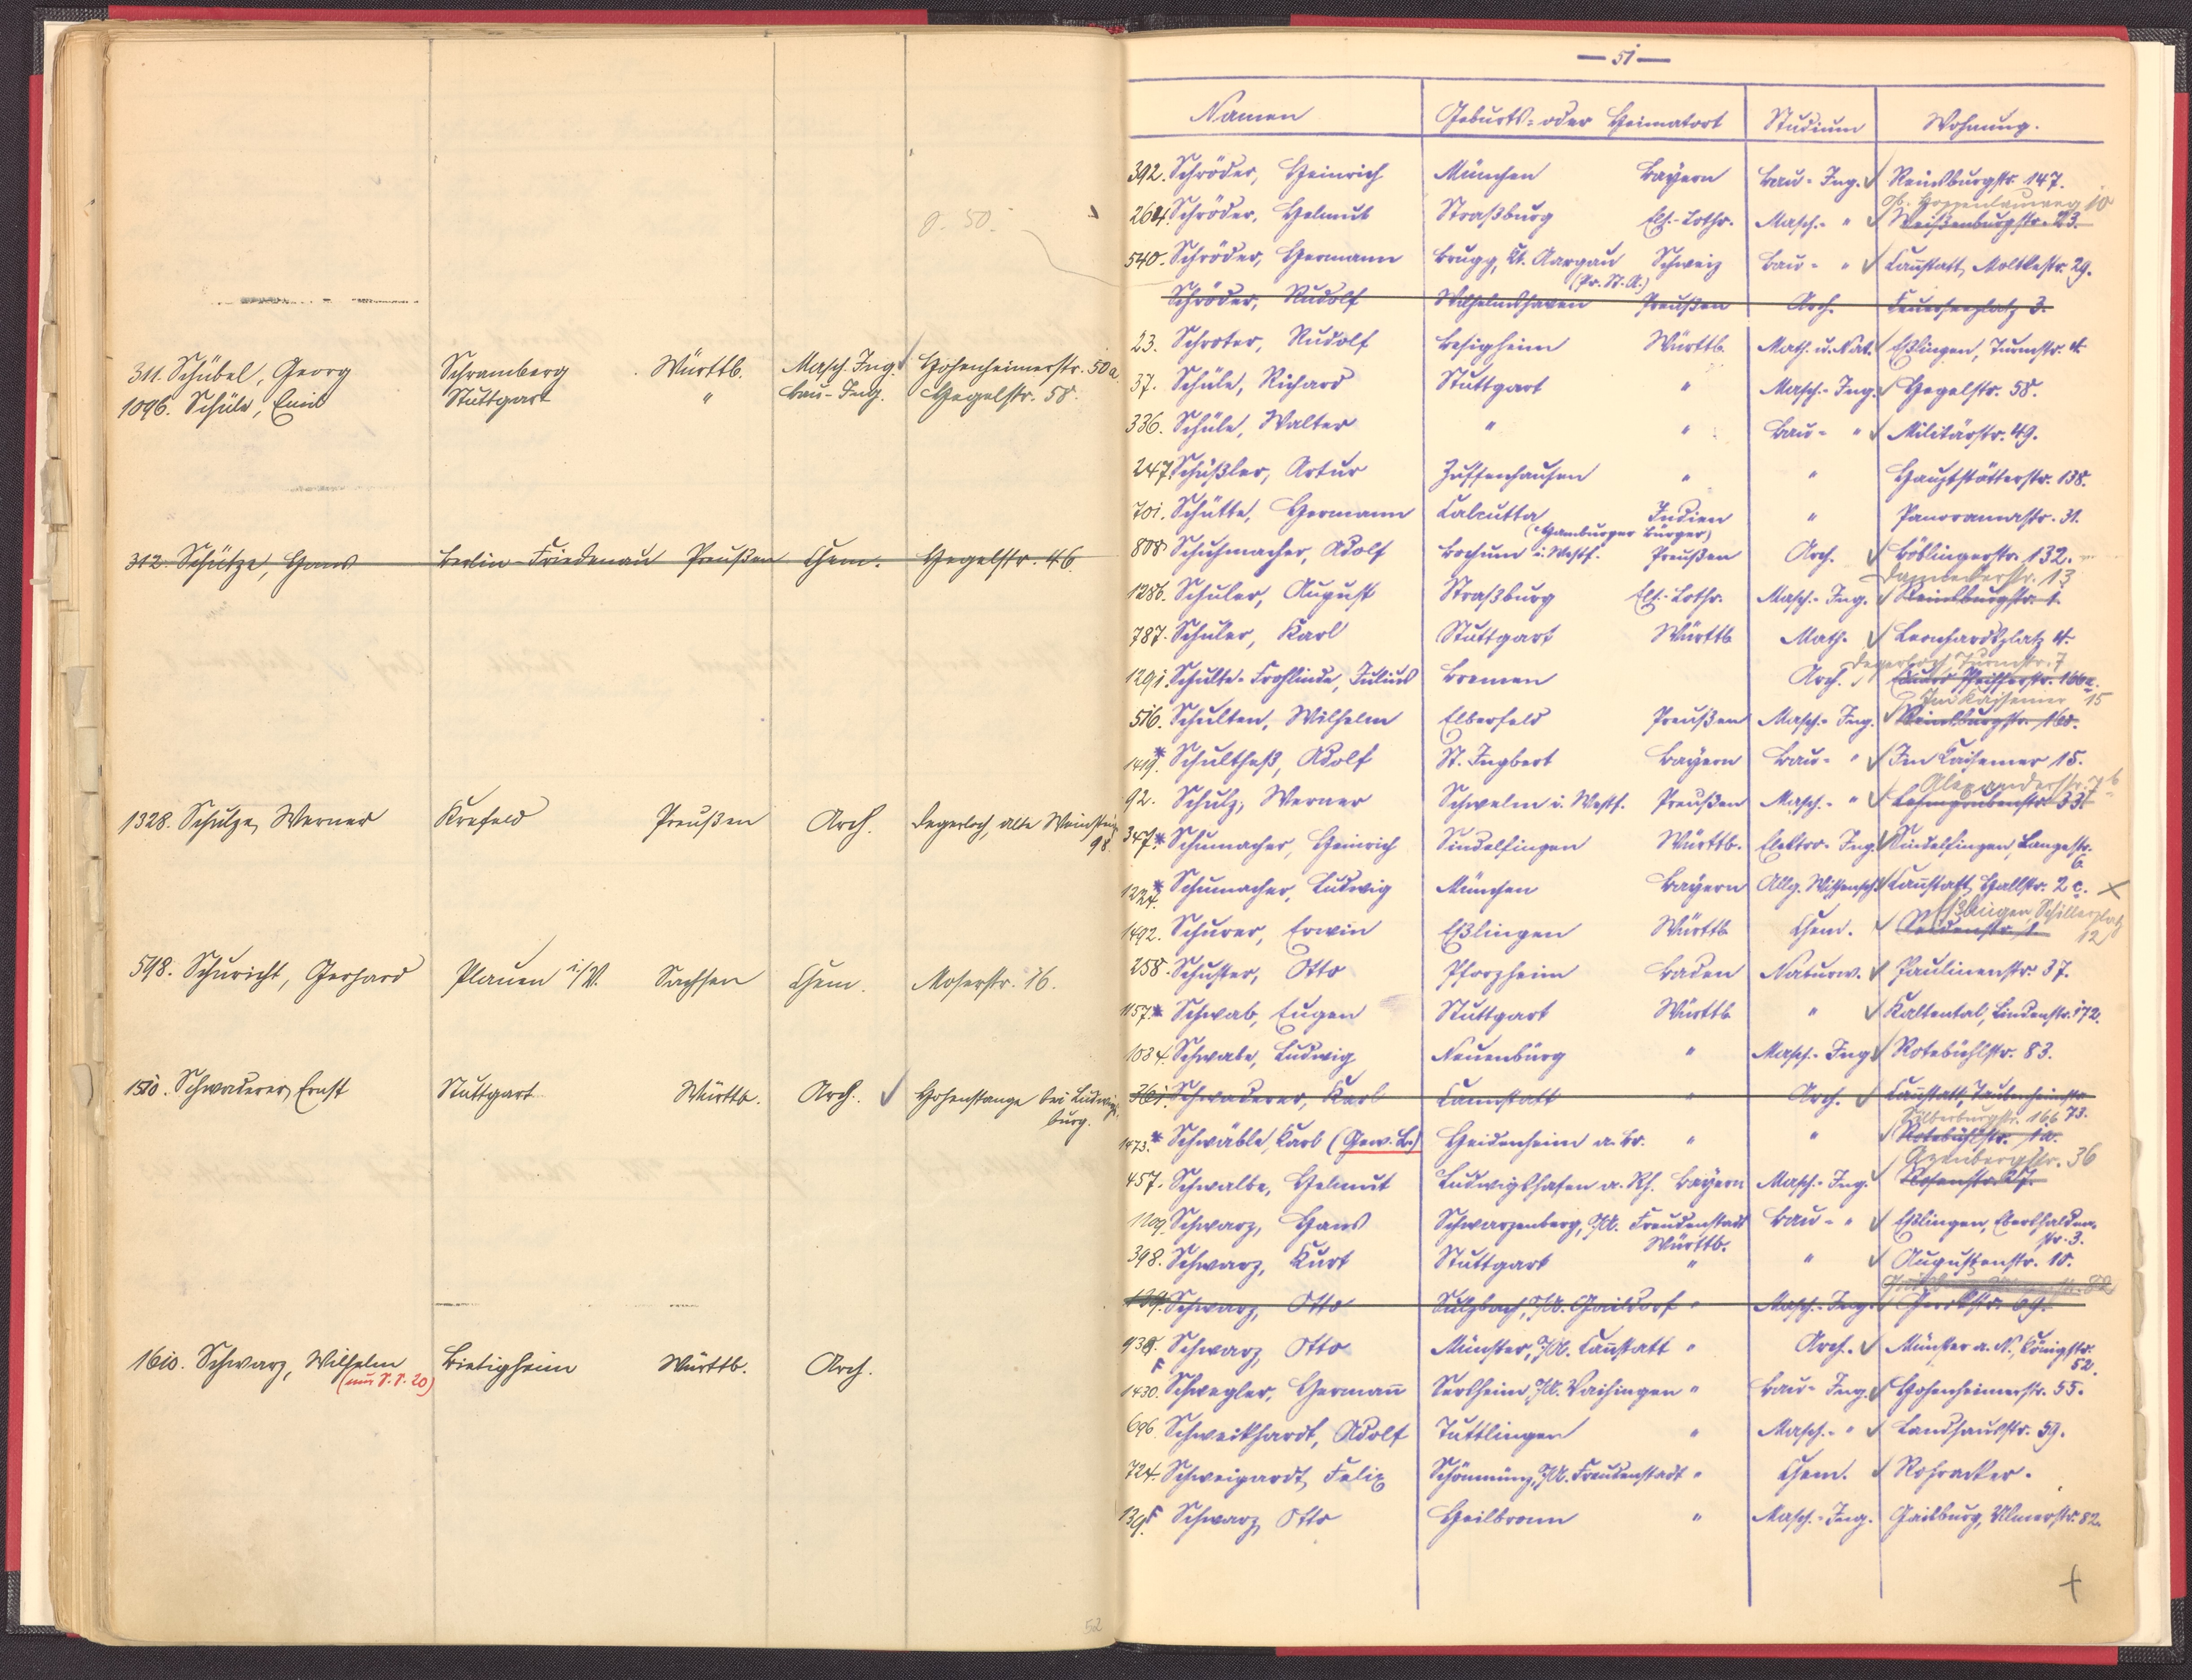 o. 50.
311. Schübel, Georg Schramberg Württb. Masch. Ing. Hohenheimerstr. 50a
1096. Schüle, Emil Stuttgart " Bau-Ing. Hegelstr. 58.
312. Schütze, Hans Berlin-Friedenau Preußen Chem. Hegelstr. 46.
1328. Schulze, Werner Krefeld Preußen Arch. Degerloch, alte Weinsteig
98.
598. Schuricht, Gerhard Plauen i/V. Sachsen Chem. Moserstr. 16.
1510. Schwaderer, Ernst Stuttgart Württb. Arch. Hohenstange bei Ludwigs-
burg.
1610. Schwarz, Wilhelm Bietigheim Württb. Arch.
(nur S.S. 20)
52
— 51 —
Namen Geburts- oder Heimatort Studium Wohnung.
392. Schröder, Heinrich München Bayern Bau-Ing. Reinsburgstr. 147.
ob. Hoppenlauweg 10
264. Schröder, Helmut Straßburg Els.-Lothr. Masch.- " Weißenburgstr. 23.
540. Schröder, Hermann Brugg, Kt. Aargau Schweiz Bau- " Cannstatt, Moltkestr. 29.
(Pr. St. A.)
Schröder, Rudolf Wilhelmshaven Preußen Arch. Feuerseeplatz 3.
23. Schroter, Rudolf Besigheim Württb. Math. u. Nat. Eßlingen, Turmstr. 4.
37. Schüle, Richard Stuttgart " Masch.-Ing. Hegelstr. 58.
336. Schüle, Walter " " Bau- " Militärstr. 49.
247. Schüßler, Artur Zuffenhausen " " Hauptstätterstr. 138.
701. Schütte, Hermann Calcutta Indien " Panoramastr. 31.
(Hamburger Bürger)
808. Schuhmacher, Adolf Bochum i. Westf. Preußen Arch. Böblingerstr. 132.
Danneckerstr. 13
1286. Schuler, August Straßburg Els.-Lothr. Masch.-Ing. Reinsburgstr. 1.
787. Schuler, Karl Stuttgart Württb Math. Leonhardsplatz 4.
Degerloch, Turmstr. 7
1291. Schulte-Frohlinde, Julius Bremen Arch. Eduard Pfeifferstr. 166a.
Im Kaisemer 15
516. Schulten, Wilhelm Elberfeld Preußen Masch.-Ing. Reinsburgstr. 160.
1419.* Schultheß, Adolf St. Ingbert Bayern Bau- " Im Kaisemer 15.
Alexanderstr. 7b
92. Schulz, Werner Schwelm i. Westf. Preußen Masch.- " Lehmgrubenstr. 33.
347.* Schumacher, Heinrich Sindelfingen Württb. Elektro-Ing. Sindelfingen, Langestr.
6.
1224.* Schumacher, Ludwig München Bayern Allg. Wissensch. Cannstatt, Hallstr. 2c. x
Eßlingen, Schillerplatz
12
1492. Schurer, Erwin Eßlingen Württb Chem.
258. Schuster, Otto Pforzheim Baden Naturw. Paulinenstr. 37.
1157.* Schwab, Eugen Stuttgart Württb " Kaltental, Lindenstr. 172.
1034. Schwabe, Ludwig Neuenbürg " Masch.-Ing. Rotebühlstr. 83.
361. Schwaderer, Karl Cannstatt " Arch. Cannstatt, Taubenheimstr.
73.
Silberburgstr. 166
1473.* Schwäble, Karl (Gew. L.) Heidenheim a. Br. " " Rotebühlstr. 1a.
Azenbergstr. 36
457. Schwalbe, Helmut Ludwigshafen a. Rh. Bayern Masch.-Ing. Rosenstr. 27.
1109. Schwarz, Hans Schwarzenberg, O/A. Freudenstadt Bau- " Eßlingen, Ebershalden-
Württb. str. 3.
398. Schwarz, Kurt Stuttgart " " Augustenstr. 10.
139. Schwarz, Otto Sulzbach, O/A. Gaildorf " Masch.-Ing.
938. Schwarz, Otto Münster, O/A. Cannstatt " Arch. Münster a. N., Königstr.
52.
1430. F Schwegler, Hermann Sersheim, O/A. Vaihingen " Bau-Ing. Hohenheimerstr. 55.
696. Schweikhardt, Adolf Tuttlingen " Masch.- " Landhausstr. 59.
724. Schweigardt, Felix Schönmünz, O/A. Freudenstadt " Chem. Rohracker.
139. F Schwarz, Otto Heilbronn " Masch.-Ing. Gaisburg, Ulmerstr. 82.
+